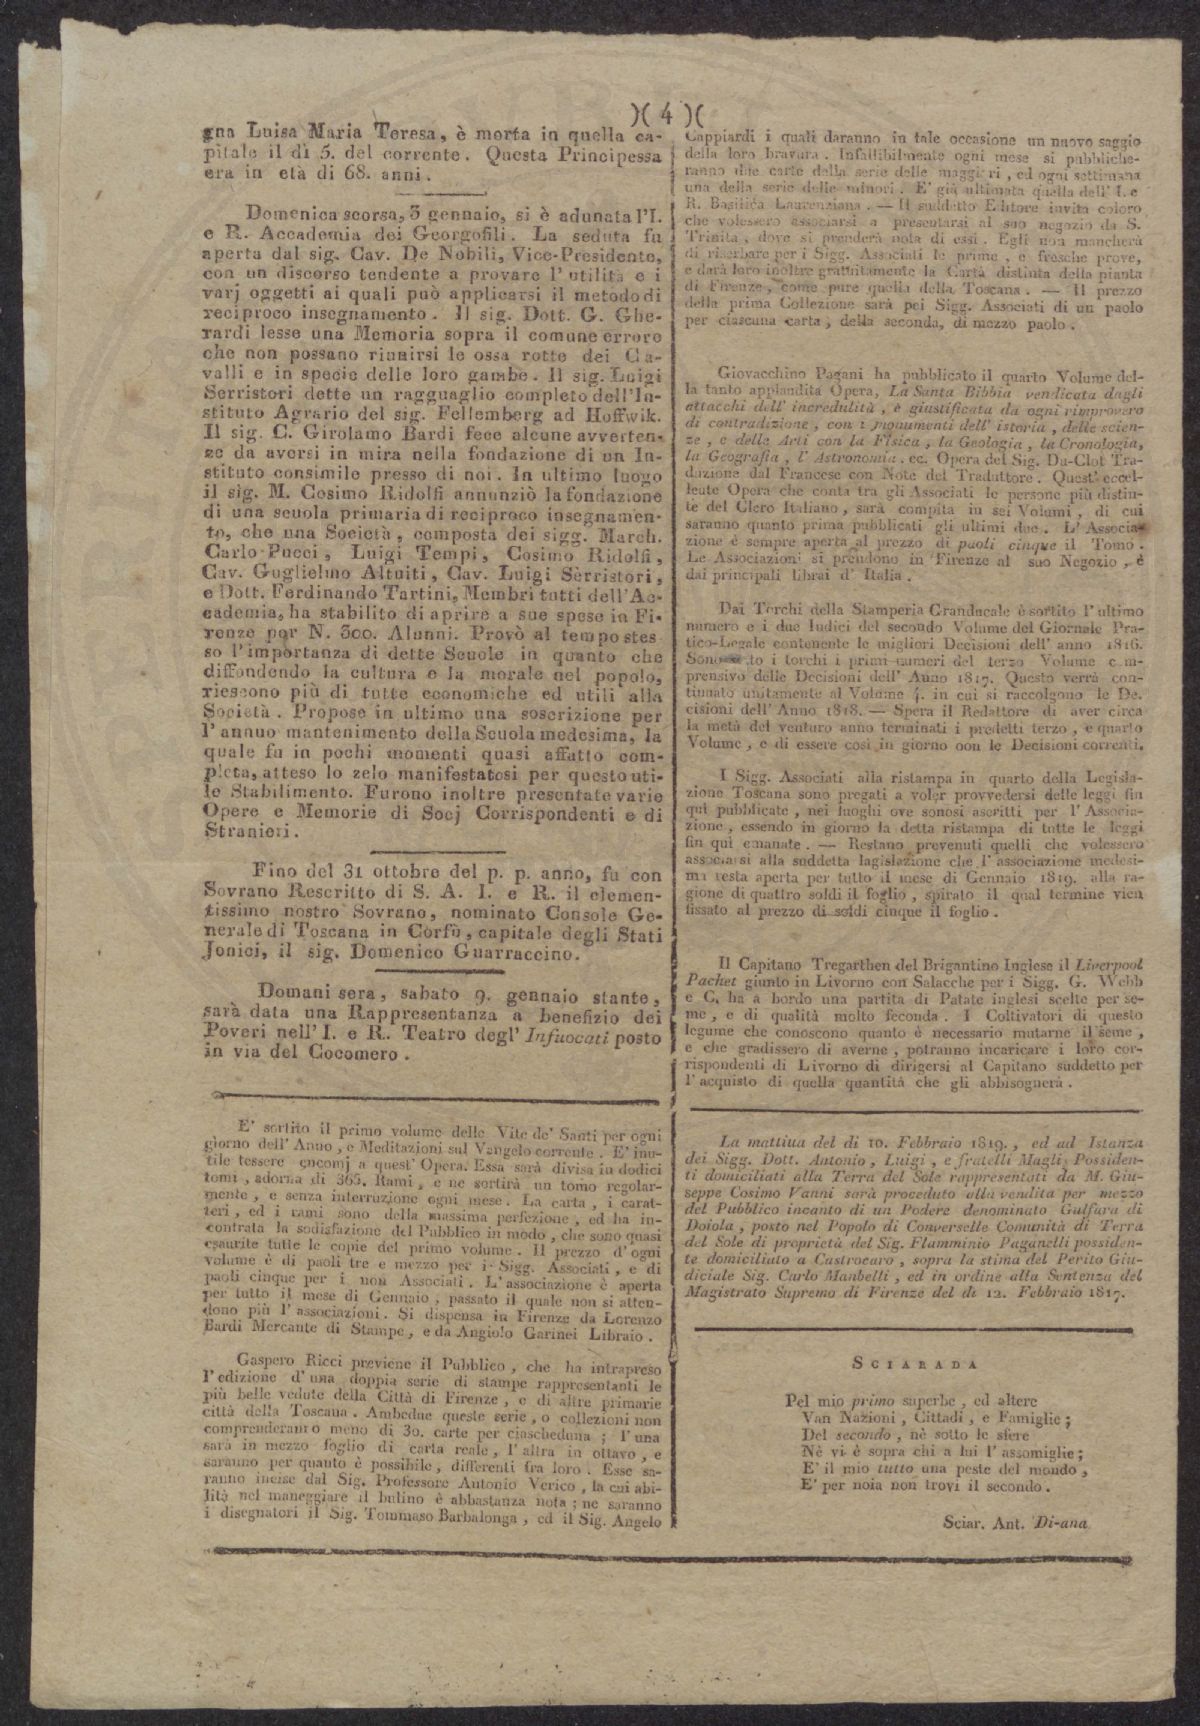 )( 4 )(
gna Luisa Maria Teresa, è morta in quella ca-
pitale il dì 5. del corrente. Questa Principessa
era in età di 68. anni.
Domenica scorsa, 3 gennaio, si è adunata l'I.
e R. Accademia dei Georgofili. La seduta fu
aperta dal sig. Cav. De Nobili, Vice-Presidente,
con un discorso tendente a provare l'utilità e i
varj oggetti ai quali può applicarsi il metodo di
reciproco insegnamento. Il sig. Dott. G. Ghe-
rardi lesse una Memoria sopra il comune errore
che non possano riunirsi le ossa rotte dei Ca-
valli e in specie delle loro gambe. Il sig. Luigi
Serristori dette un ragguaglio completo dell'In-
stituto Agrario del sig. Fellemberg ad Hoffwik.
Il sig. C. Girolamo Bardi fece alcune avverten-
ze da aversi in mira nella fondazione di un In-
stituto consimile presso di noi. In ultimo luogo
il sig. M. Cosimo Ridolfi annunziò la fondazione
di una scuola primaria di reciproco insegnamen-
to, che una Società, composta dei sigg. March.
Carlo Pucci, Luigi Tempi, Cosimo Ridolfi,
Cav. Guglielmo Altuiti, Cav. Luigi Serristori,
e Dott. Ferdinando Tartini, Membri tutti dell'Ac-
cademia, ha stabilito di aprire a sue spese in Fi-
renze per N. 300. Alunni. Provò al tempo stes
so l'importanza di dette Scuole in quanto che
diffondendo la cultura e la morale nel popolo,
riescono più di tutte economiche ed utili alla
Società. Propose in ultimo una soscrizione per
l'annuo mantenimento della Scuola medesima, la
quale fu in pochi momenti quasi affatto com-
pleta, atteso lo zelo manifestatosi per questo uti-
le Stabilimento. Furono inoltre presentate varie
Opere e Memorie di Socj Corrispondenti e di
Stranieri.
Fino del 31 ottobre del p. p. anno, fu con
Sovrano Rescritto di S. A. I. e R. il clemen-
tissimo nostro Sovrano, nominato Console Ge-
nerale di Toscana in Corfù, capitale degli Stati
Jonici, il sig. Domenico Guarraccino.
Domani sera, sabato 9. gennaio stante,
sarà data una Rappresentanza a benefizio dei
Poveri nell'I. e R. Teatro degl'Infuocati posto
in via del Cocomero.
E' sortito il primo volume delle Vite de' Santi per ogni
giorno dell'Anno, e Meditazioni sul Vangelo corrente. E' inu-
tile tessere encomj a quest'Opera. Essa sarà divisa in dodici
tomi, adorna di 365. Rami, e ne sortirà un tomo regolar-
mente, e senza interruzione ogni mese. La carta, i carat-
teri, ed i rami sono della massima perfezione, ed ha in-
contrata la sodisfazione del Pubblico in modo, che sono quasi
esaurite tutte le copie del primo volume. Il prezzo d'ogni
volume è di paoli tre e mezzo per i Sigg. Associati, e di
paoli cinque per i non Associati. L'associazione è aperta
per tutto il mese di Gennaio, passato il quale non si atten-
dono più l'associazioni. Si dispensa in Firenze da Lorenzo
Bardi Mercante di Stampe, e da Angiolo Garinei Libraio.
Gaspero Ricci previene il Pubblico, che ha intrapreso
l'edizione d'una doppia serie di stampe rappresentanti le
più belle vedute della Città di Firenze, e di altre primarie
città della Toscana. Ambedue queste serie, o collezioni non
comprenderanno meno di 30. carte per ciascheduna; l'una
sarà in mezzo foglio di carta reale, l'altra in ottavo, e
saranno per quanto è possibile, differenti fra loro. Esse sa-
ranno incise dal Sig. Professore Antonio Verico, la cui abi-
lità nel maneggiare il bulino è abbastanza nota; ne saranno
i disegnatori il Sig. Tommaso Barbalonga, ed il Sig. Angelo
Cappiardi i quali daranno in tale occasione un nuovo saggio
della loro bravura. Infallibilmente ogni mese si pubbliche-
ranno due carte della serie delle maggiori, ed ogni settimana
una della serie delle minori. E' già ultimata quella dell'I. e
R. Basilica Laurenziana. — Il suddetto Editore invita coloro
che volessero associarsi a presentarsi al suo negozio da S.
Trinita, dove si prenderà nota di essi. Egli non mancherà
di riserbare per i Sigg. Associati le prime, e fresche prove,
e darà loro inoltre gratuitamente la Carta distinta della pianta
di Firenze, come pure quella della Toscana. — Il prezzo
della prima Collezione sarà pei Sigg. Associati di un paolo
per ciascuna carta, della seconda, di mezzo paolo.
Giovacchino Pagani ha pubblicato il quarto Volume del-
la tanto applaudita Opera, La Santa Bibbia vendicata dagli
attacchi dell'incredulità, e giustificata da ogni rimprovero
di contradizione, con i monumenti dell'istoria, delle scien-
ze, e delle Arti con la Fisica, la Geologia, la Cronologia,
la Geografia, l'Astronomia. ec. Opera del Sig. Du-Clot Tra-
duzione dal Francese con Note del Traduttore. Quest'eccel-
lente Opera che conta tra gli Associati le persone più distin-
te del Clero Italiano, sarà compita in sei Volumi, di cui
saranno quanto prima pubblicati gli ultimi due. L'Associa-
zione è sempre aperta al prezzo di paoli cinque il Tomo.
Le Associazioni si prendono in Firenze al suo Negozio, e
dai principali librai d'Italia.
Dai Torchi della Stamperia Granducale è sortito l'ultimo
numero e i due Indici del secondo Volume del Giornale Pra-
tico-Legale contenente le migliori Decisioni dell'anno 1816.
Sono to i torchi i primi numeri del terzo Volume com-
prensivo delle Decisioni dell'Anno 1817. Questo verrà con-
tinuato unitamente al Volume 4. in cui si raccolgono le De-
cisioni dell'Anno 1818. — Spera il Redattore di aver circa
la metà del venturo anno terminati i predetti terzo, e quarto
Volume, e di essere così in giorno con le Decisioni correnti.
I Sigg. Associati alla ristampa in quarto della Legisla-
zione Toscana sono pregati a voler provvedersi delle leggi fin
qui pubblicate, nei luoghi ove sonosi ascritti per l'Associa-
zione, essendo in giorno la detta ristampa di tutte le leggi
fin qui emanate. — Restano prevenuti quelli che volessero
associarsi alla suddetta lagislazione che l'associazione medesi-
ma resta aperta per tutto il mese di Gennaio 1819. alla ra-
gione di quattro soldi il foglio, spirato il qual termine vien
fissato al prezzo di soldi cinque il foglio.
Il Capitano Tregarthen del Brigantino Inglese il Liverpool
Packet giunto in Livorno con Salacche per i Sigg. G. Webb
e C. ha a bordo una partita di Patate inglesi scelte per se-
me, e di qualità molto feconda. I Coltivatori di questo
legume che conoscono quanto è necessario mutarne il seme,
e che gradissero di averne, potranno incaricare i loro cor-
rispondenti di Livorno di dirigersi al Capitano suddetto per
l'acquisto di quella quantità che gli abbisognerà.
La mattiua del dì 10. Febbraio 1819., ed ad Istanza
dei Sigg. Dott. Antonio, Luigi, e fratelli Magli, Possiden-
ti domiciliati alla Terra del Sole rappresentati da M. Giu-
seppe Cosimo Vanni sarà proceduto alla vendita per mezzo
del Pubblico incanto di un Podere denominato Gulfara di
Doiola, posto nel Popolo di Converselle Comunità di Terra
del Sole di proprietà del Sig. Flamminio Paganelli possiden-
te domiciliato a Castrocaro, sopra la stima del Perito Giu-
diciale Sig. Carlo Manbelli, ed in ordine alla Sentenza del
Magistrato Supremo di Firenze del dì 12. Febbraio 1817.
SCIARADA
Pel mio primo superbe, ed altere
Van Nazioni, Cittadi, e Famiglie;
Del secondo, nè sotto le sfere
Nè vi è sopra chi a lui l'assomiglie;
E' il mio tutto una peste del mondo,
E' per noia non trovi il secondo.
Sciar. Ant. Di-ana